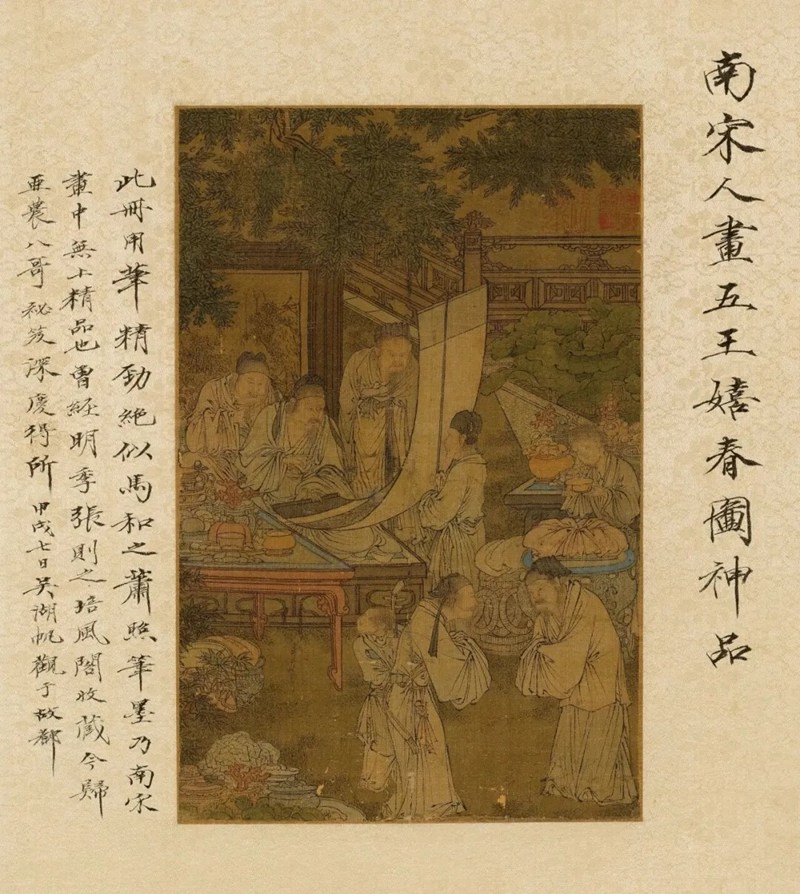 南宋人畫五王嬉春圖神品
此冊用筆精勁絕似馬和之蕭照筆墨乃南宋
畫中無上精品也曾經明季張則之培風閣收藏今歸
亜農八哥秘笈深慶得所 甲戌七日吳湖帆觀于故都